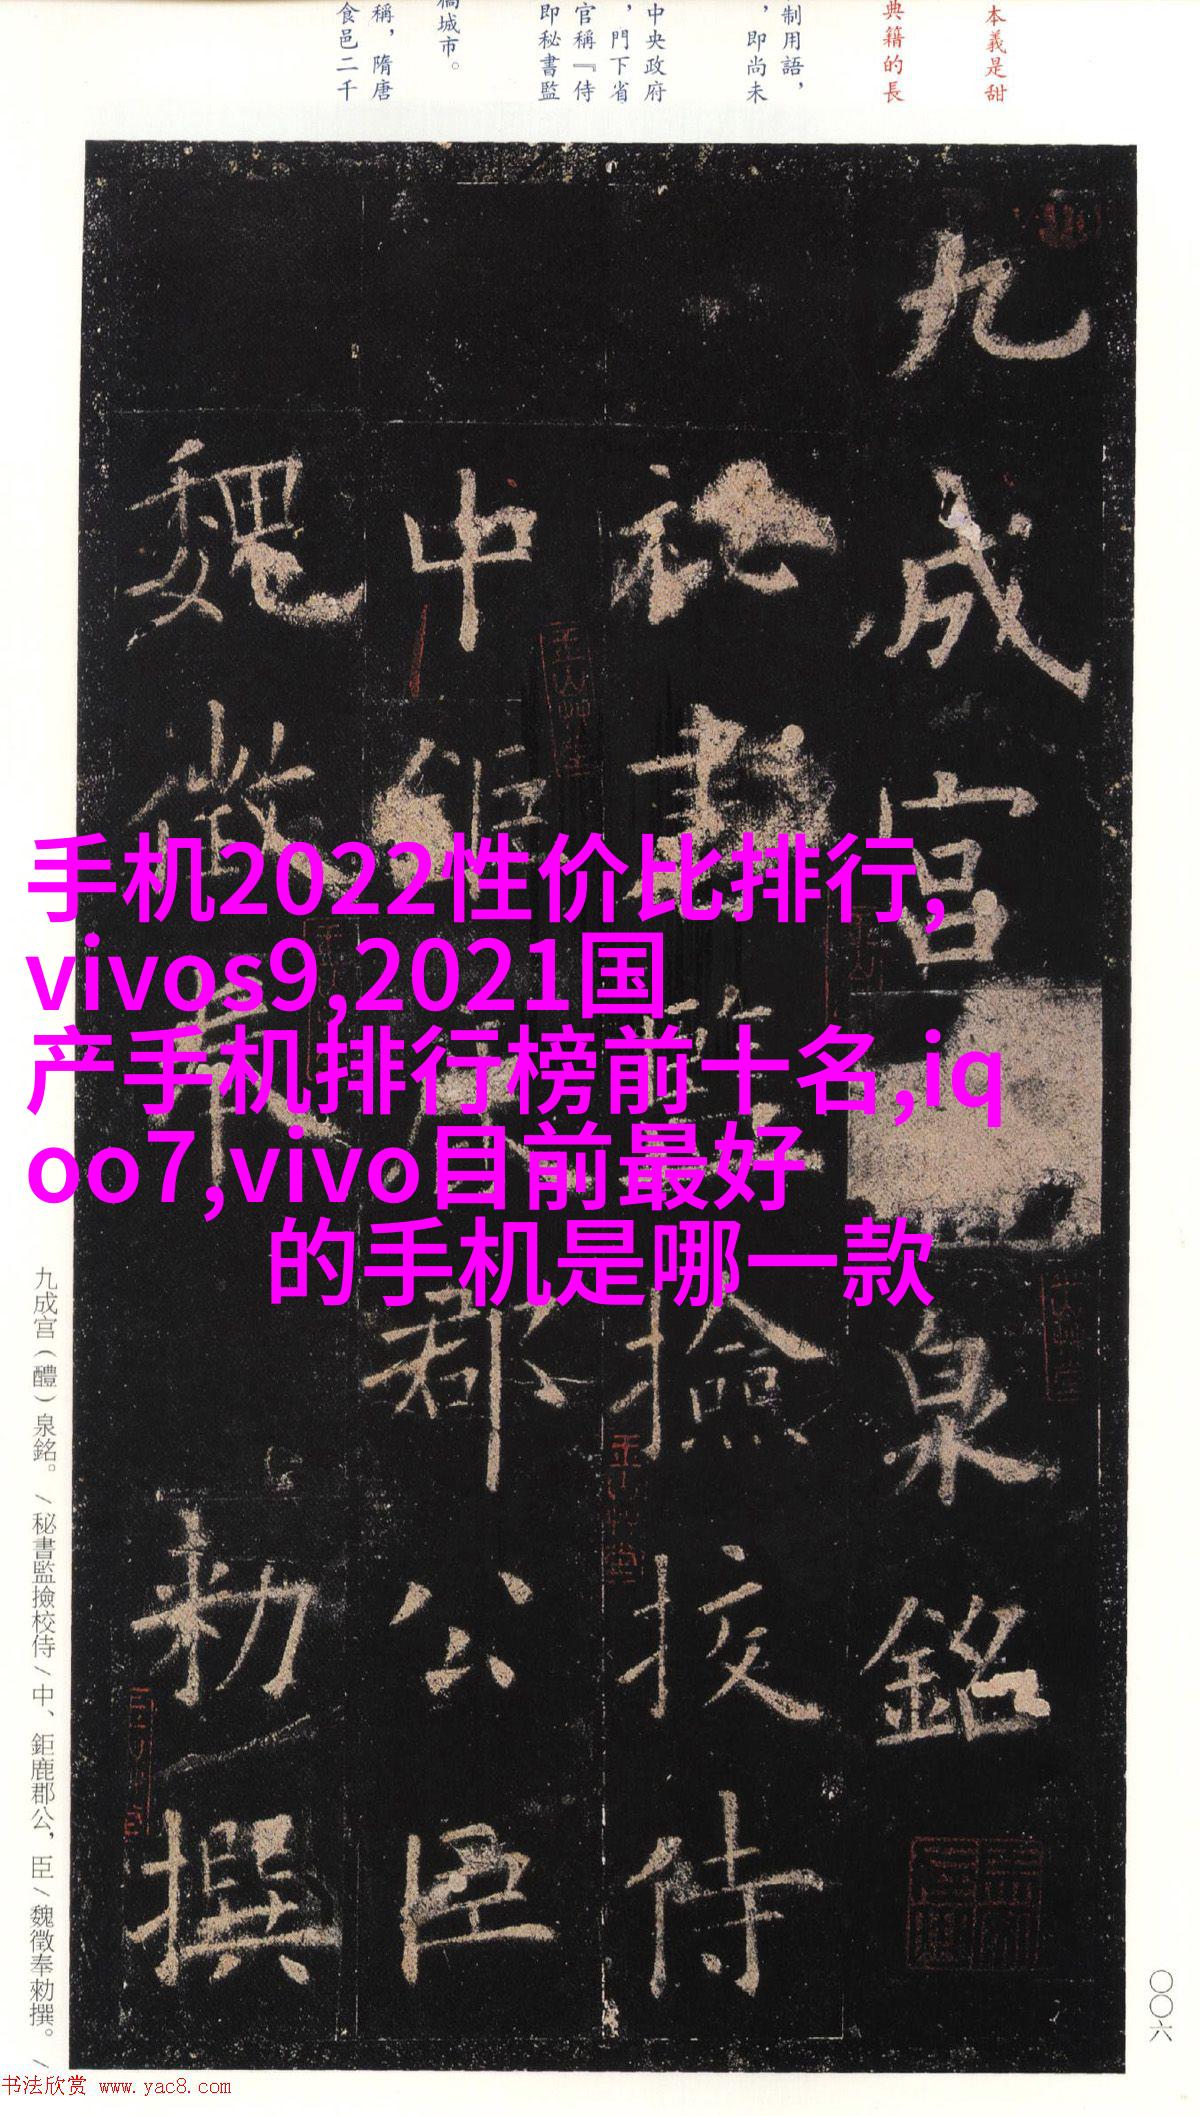 本義是甜
典籍的長
制用語，
，即尚未
中央政府
，門下省
官稱『侍
即秘書監
城市。
稱，隋唐
食邑二千
九成宫泉銘
祕書監撿挍侍
中鉅鹿郡公臣
魏徵奉勑撰
手机2022性价比排行,
vivos9,2021国
产手机排行榜前十名,iq
oo7,vivo目前最好
的手机是哪一款
九成宫（醴）泉銘。/秘書監撿校侍/中、鉅鹿郡公，臣/魏徵奉勑撰。/
〇〇六
书法欣赏 www.yac8.com